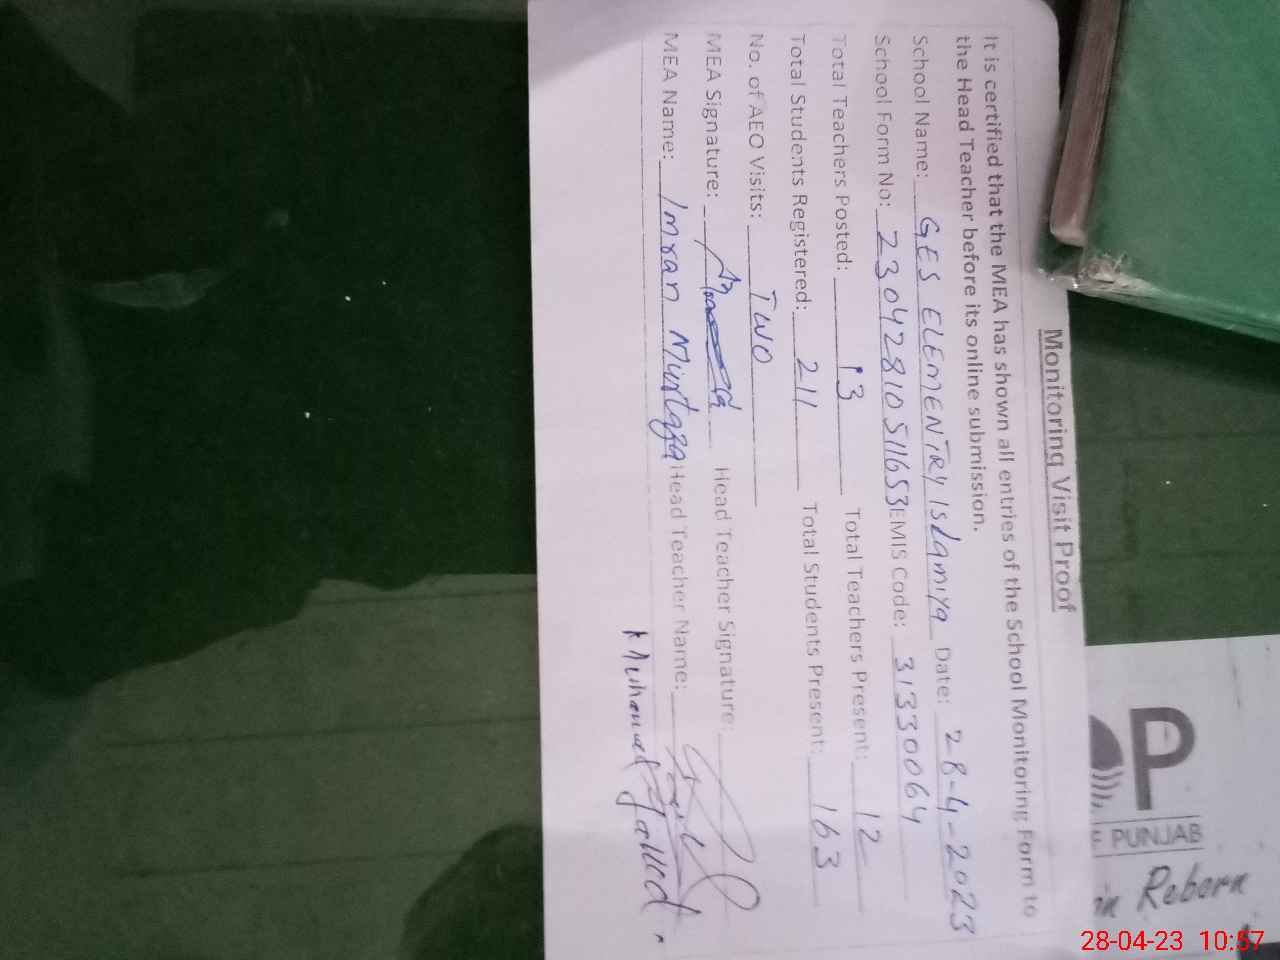 Monitoring Visit Proof
It is certified that the MEA has shown all entries of the School Monitoring Form to
the Head Teacher before its online submission.
School Name: GES ELEMENTRY ISLAMIYA Date: 28-4-2023
School Form No: 23042810511653 EMIS Code: 31330064
Total Teachers Posted: 13 Total Teachers Present: 12
Total Students Registered: 211 Total Students Present: 163
No. of AEO Visits: TWO
MEA Signature: Head Teacher Signature:
MEA Name: Imran Murtaza Head Teacher Name:
P
PUNJAB
in Reborn
28-04-23 10:57